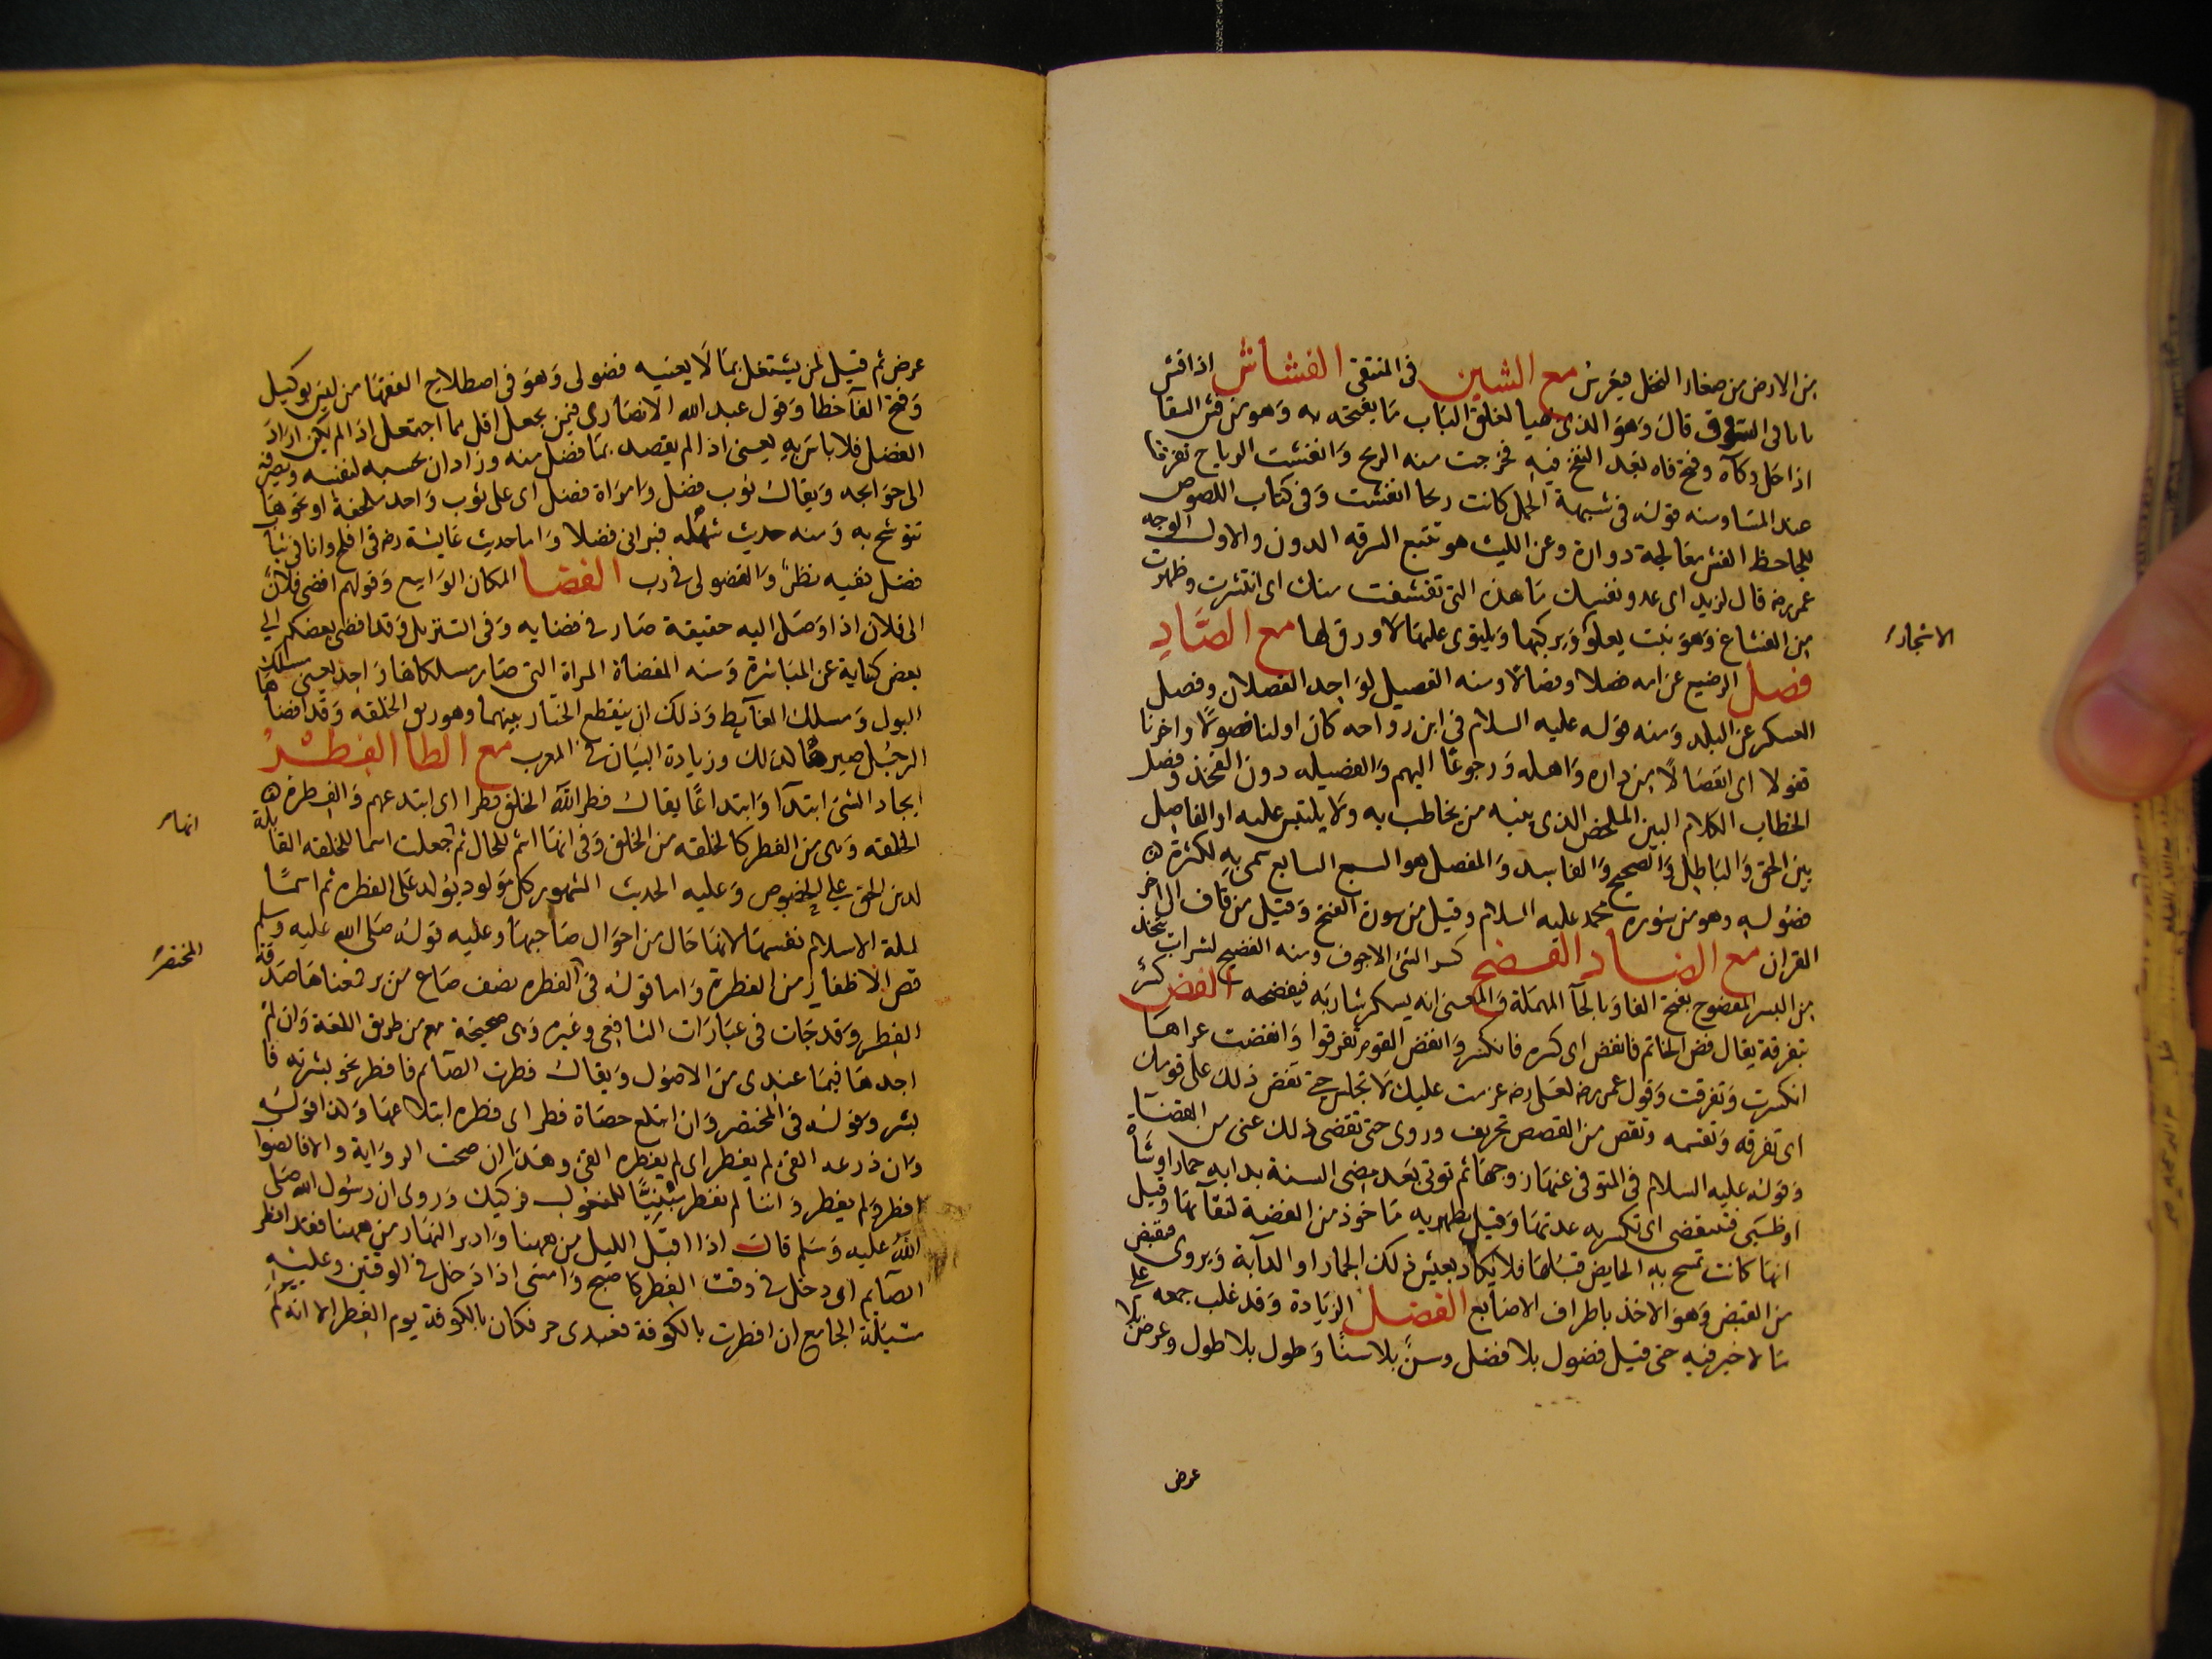 من الارض من صغار النخل فيغرس مع الشين في المنتقى الفشاش اذا فش
بابا في السوق قال وهو الذى يهيا لغلق الباب ما يفتحه به وهو من فش السقا
اذا حل وكآه وفتح فاه بعد النفخ فيه فخرجت منه الريح وانفشت الرياح تفرقا
عند المسا ومنه قوله في شبهة الحمل كانت ريحا انفشت وفى كتاب اللصوص
للجاحظ الفش معالجة دوارة وعن الليث هو تتبع السرقه الدون والاول الوجه
عمر رض قال لزيد اى عدو نفسك ما هذه التى تفشفت منك اى انتشرت وظهرت
من الفشاغ وهو نبت يعلو ويركبها ويلتوى عليها لا ورق لها مع الصاد
الاشجار
فصل الرضيع عن امه فصلا وفصالا ومنه الفصيل لواحد الفصلان وفصل
العسكر عن البلد ومنه قوله عليه السلام في ابن رواحه كان اولنا فصولا واخرنا
قفولا اى انفصالا من داره واهله ورجوعا اليهم والفصيله دون الفخذ وفصل
الخطاب الكلام البين الملخص الذى يبينه من يخاطب به ولا يلتبس عليه او الفاصل
بين الحق والباطل والصحيح والفاسد والمفصل هو السبع السابع سمى به لكثرة
فصوله وهو من سورة محمد عليه السلام وقيل من سورة الفتح وقيل من قاف الى اخر
القران مع الضاد الفضخ كسر الشئ الاجوف ومنه الفضيخ لشراب يتخذ
من البسر المفضوح بفتح الفا وبالحآ المهملة والمعنى انه يسكر شاربه فيفضحه الفض كسر
بتفرقة يقال فض الخاتم فانفض اى كسره فانكسر وانفض القوم تفرقوا وانفضت عراها
انكسرت وتفرقت وقول عمر رض لعلى رض عزمت عليك لا تجلس حتى تفض ذلك على قومك
اى تفرقه وتقسمه وتقص من القصص تحريف وروى حتى تقضى ذلك عنى من القضآء
وقوله عليه السلام في المتوفى عنها زوجها ثم توتى بعد مضى السنة بدابه حمار او شاة
او ظبى فتفتض اى تكسر به عدتها وقيل تطهر به ماخوذ من الفضة لنقآئها وقيل
انها كانت تمسح به الحايض قبلها فلا يكاد يعيش ذلك الحمار او الدآبة ويروى فتقبض
من القبض وهو الاخذ باطراف الاصابع الفضل الزيادة وقد غلب جمعه على
ما لا خير فيه حتى قيل فضول بلا فضل وسن بلا سنا وطول بلا طول وعرض بلا
عرض
عرض ثم قيل لمن يشتغل بما لا يعنيه فضولى وهو في اصطلاح الفقها من ليس بوكيل
وفتح الفآ خطا وقول عبد الله الانصارى فيمن يجعل اقل مما اجتعل اذا لم يكن اراد
الفضل فلا باس به يعنى اذا لم يقصد بما فضل منه وزاد ان يحبسه لنفسه ويصرفه
الى حوايجه ويقال ثوب فضل وامراة فضل اى على ثوب واحد ملحفة او نحوها
تتوشح به ومنه حديث سهله فيرانى فضلا واما حديث عايشة رض في افلح وانا في ثياب
فضل ففيه نظر والفضولى في رب الفضا المكان الواسع وقولهم افضى فلان
الى فلان اذا وصل اليه حقيقة صار في فضايه وفى التنزيل وقد افضى بعضكم الى
بعض كناية عن المباشرة ومنه المفضاة المراة التى صار مسلكاها واحد يعنى مسلك
البول ومسلك الغآيط وذلك ان ينقطع الحتار بينهما وهو زيق الحلقه وقد افضاها
الرجل صيرها كذلك وزيادة البيان في المعرب مع الطا الفطر
ايجاد الشئ ابتدآ وابتداعا يقال فطر الله الخلق فطرا اى ابتدعهم والفطرة
الخلقه وهى من الفطر كالخلقه من الخلق وفى انها اسم للحال ثم جعلت اسما للخلقه القابلة
انها
لدين الحق على الخصوص وعليه الحديث المشهور كل مولود يولد على الفطره ثم اسما
لملة الاسلام نفسها لانها حال من احوال صاحبها وعليه قوله صلى الله عليه وسلم
قص الاظفار من الفطرة واما قوله في المختصر الفطره نصف صاع من بر فمعناها صدقة
المختصر
الفطر وقد جات في عبارات الشافعى وغيره وهى صحيحة من طريق اللغة وان لم
اجدها فيما عندى من الاصول ويقال فطرت الصآئم فافطر نحو بشرته فا
بشر وقوله في المختصر وان ابتلع حصاة فطر اى فطره ابتلاعها وكذا قوله
وان ذرعه القئ لم يفطر اى لم يفطره القئ وهذا ان صحت الرواية والا فالصواب
افطر ولم يفطر واننا لم نفطر مبنيا للمفعول فركيك وروى ان رسول الله صلى
الله عليه وسلم قال اذا اقبل الليل من ههنا وادبر النهار من ههنا فقد افطر
الصآئم اى دخل في وقت الفطر كاصبح وامسى اذا دخل في الوقتين وعليه
مسئلة الجامع ان افطرت بالكوفة فعبدى حر فكان بالكوفة يوم الفطر الا انه لم